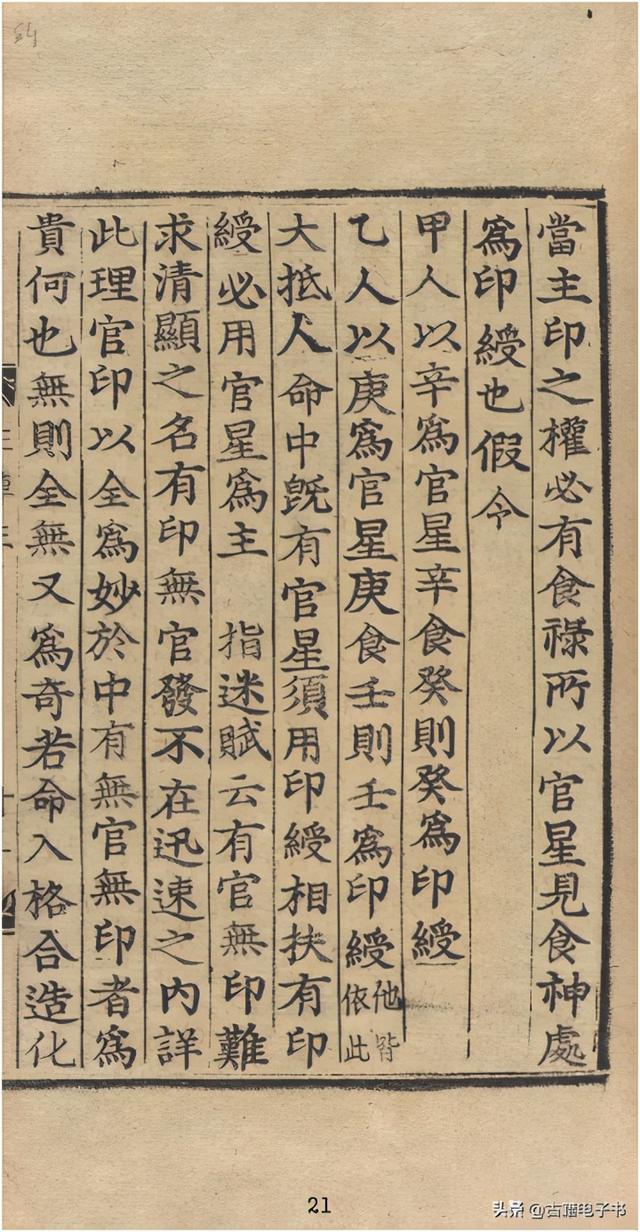 當主印之權必有食祿所以官星見食神處
爲印綬也假令
甲人以辛爲官星辛食癸則癸爲印綬
乙人以庚爲官星庚食壬則壬爲印綬他皆依此
大抵人命中旣有官星須用印綬相扶有印
綬必用官星爲主　指迷賦云有官無印難
求清顯之名有印無官發不在迅速之内詳
此理官印以全爲妙於中有無官無印者爲
貴何也無則全無又爲奇若命入格合造化
21
头条 @古籍电子书